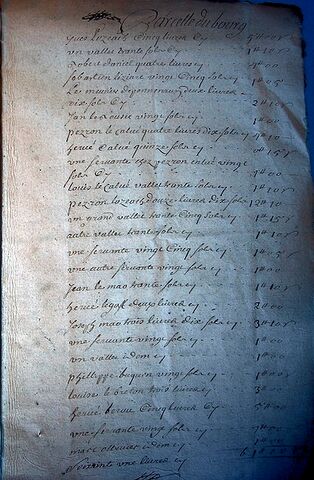 Parcelle du bourg
yves Lozeach Cinq livres Cy 5# 00s
un vallet trante sols Cy 1# 10s
Robert daniel quatre livres cy 4# 00
sebastien vingt Cinq sols cy 1# 05s
Les deux livres
dix sols Cy 2# 10
Jan le cy
pezron le calvé quatre livres dix sols cy 4# 10
hervé Calvé quinze sols cy 0# 15s
une servante chez pezron calvé vingt
sols Cy 1# 00
Louis le calvé vallet trante sols cy 1# 10s
pezron Lozeach douze livres dix sols 12# 10
un grand vallet trante Cinq sols cy 1# 15s
autre vallet trante sols cy 1# 10s
une servante vingt Cinq sols cy 1# 05
une autre servante vingt sols cy 1# 00
Jean le mao trante sols cy 1# 10s
hervé le deux livres cy 2# 00
Joseph mao trois livres dix sols cy 3# 10s
une servante vingt sols cy 1# 00
un vallet idem cy 1# 00
phillippe vingt sols cy 1# 00
Louise le breton trois livres cy 3# 00
hervé Cinq livres Cy 5# 00
une servante vingt sols cy 1# 00
marc ollivier idem cy 1# 00
Soixante une livres cy 61# 00